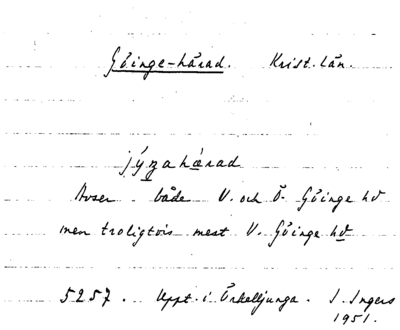 Göinge-härad. Krist. län.
jýngahärad
Avser både V. och Ö. Göinge hd
men troligtvis mest V. Göinge hd
5257. Uppt. i Örkelljunga. I. Ingers
1951.